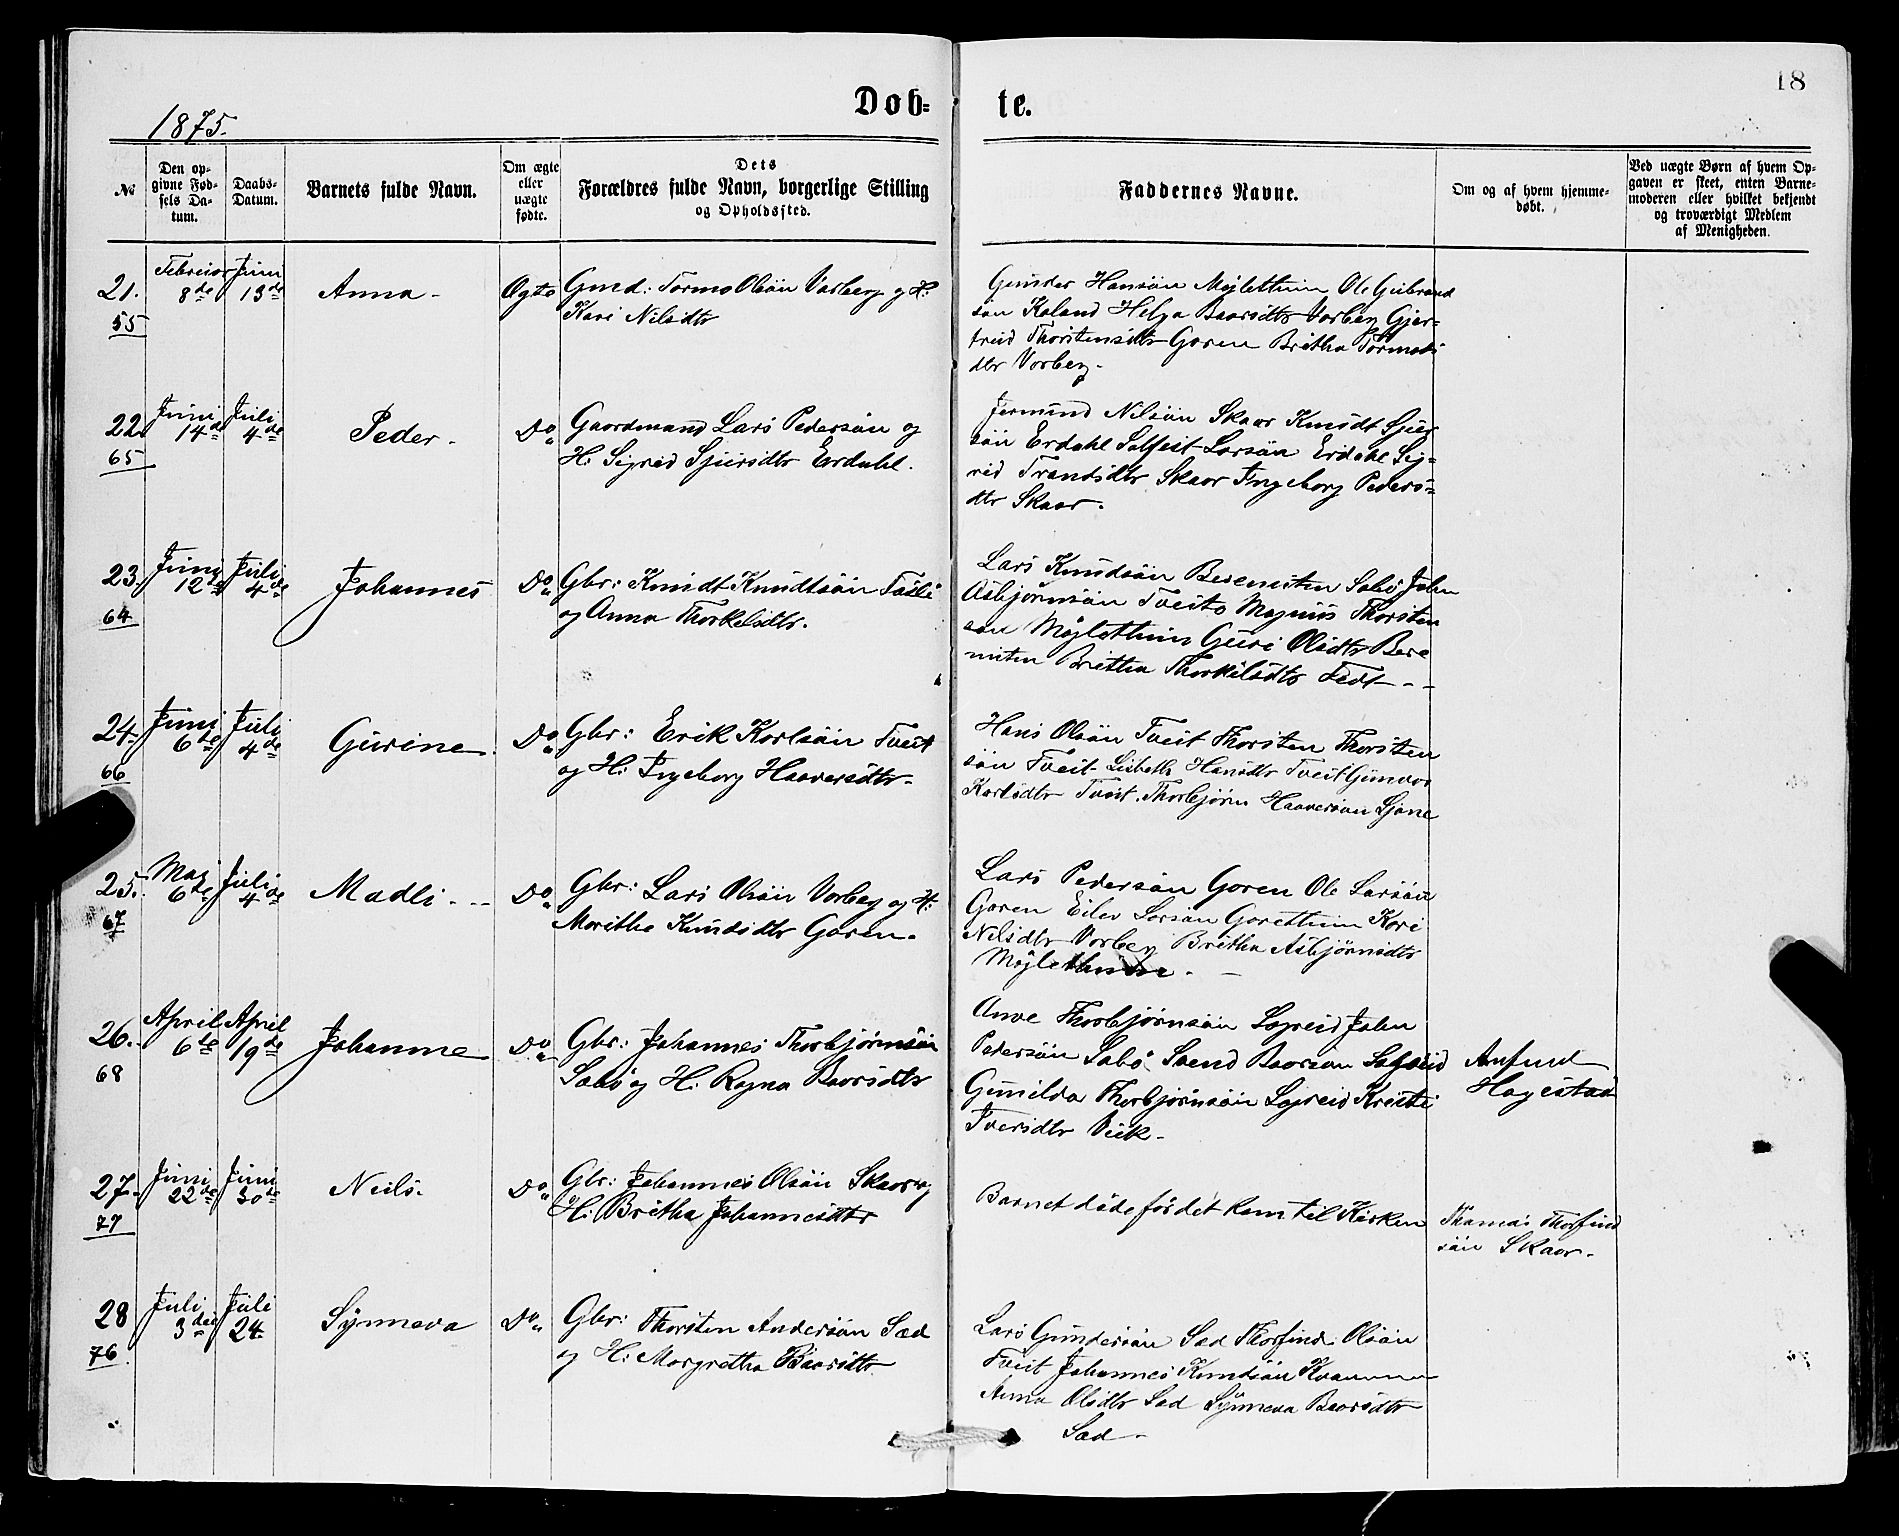 18
Døb-te.
1875.
№
Den op-
givne Fød-
sels Da-
tum.
Daabs-
Datum.
Barnets fulde Navn.
Om ægte
eller
uægte
fødte.
Dets
Forældres fulde Navn, borgerlige Stilling
og Opholdssted.
Faddernes Navne.
Om og af hvem hjemme-
døbt.
Ved uægte Børn af hvem Op-
gaven er skeet, enten Barne-
moderen eller hvilket bekjendt
og troværdigt Medlem
af Menigheden.
21.
55
Februar
8de
Juni
13de
Anna -
Ægte
Gmd: Tormo Olsön Vorberg og H:
Kari Nilsdtr
Gunder Hansön Möjlethun Ole Gubrand
sön Koland Helga Baarsdtr Vorberg Gjer-
trud Thorstensdtr Goren Britha Tormods
dtr Vorberg.
22.
65
Juni
14de
Juli
4de
Peder -
Do
Gaardmand Lars Pedersön og
H: Sigrid Sjursdtr Erdahl.
Jermund Nilsön Skaar Knudt Sjur
sön Erdahl Salfest Larsön Erdahl Sig-
rid Trondsdtr Skaar Ingeborg Peders-
dtr Skaar.
23.
64
Juni
12te
Juli
4de
Johannes
Do
Gbr: Knudt Knudtsön
og Anna Thorkelsdtr.
Lars Knudsön Sabö John
Asbjörnsön Tveito Magnus Thorsten
sön Möjlethun Guri Olsdtr Bere
miten Britha Thorkilsdtr Fedt - -
24
66
Juni
6te
Juli
4de
Gurine.
Do
Gbr: Erik Korlsön Tveit
og H: Ingeborg Haaversdtr.
Hans Olsön Tveit Thorsten Thorsten
sön Tveit Lisbeth Hansdtr Tveit Gunvor
Korlsdtr Tveit. Thorbjörn Haaversön Ljone
25.
67
Maj
6te
Juli
4de
Madli - -
Do
Gbr: Lars Olsön Vorberg og H:
Moritha Knudsdtr Goren.
Lars Pedersön Goren Ole Larsön
Goren Eilev Larsön Gorethun Kari
Nilsdtr Vorberg Britha Asbjörnsdtr
Möjlethun. -
26.
68
April
6te
April
19de
Johanne
Do
Gbr: Johannes Thorbjörnsön
Sabö og H: Ragna Baarsdtr
Anve Thorbjörnsön Legreid John
Pedersön Sabö Svend Baarsön Legreid
Gunilda Thorbjörnsön Legreid Kristi
Iversdtr Viik.
Anfind
Hagestad
27.
77
Juni
22de
Juni
30de
Neils.
Do
Gbr: Johannes Olsön Skaar og
H: Britha Johannesdtr
Barnet döde för det kom til Kirken
Thomas Thorfind
sön Skaar.
28
76
Juli
3die
Juli
24
Synneva
Do
Gbr: Thorsten Andersön Sæd
og H: Morgretha Baarsdtr
Lars Gundersön Sæd Thorfind Olsön
Tveit Johannes Knudsön Kvamme
Anna Olsdtr Sæd Synneva Baarsdtr
Sæd -